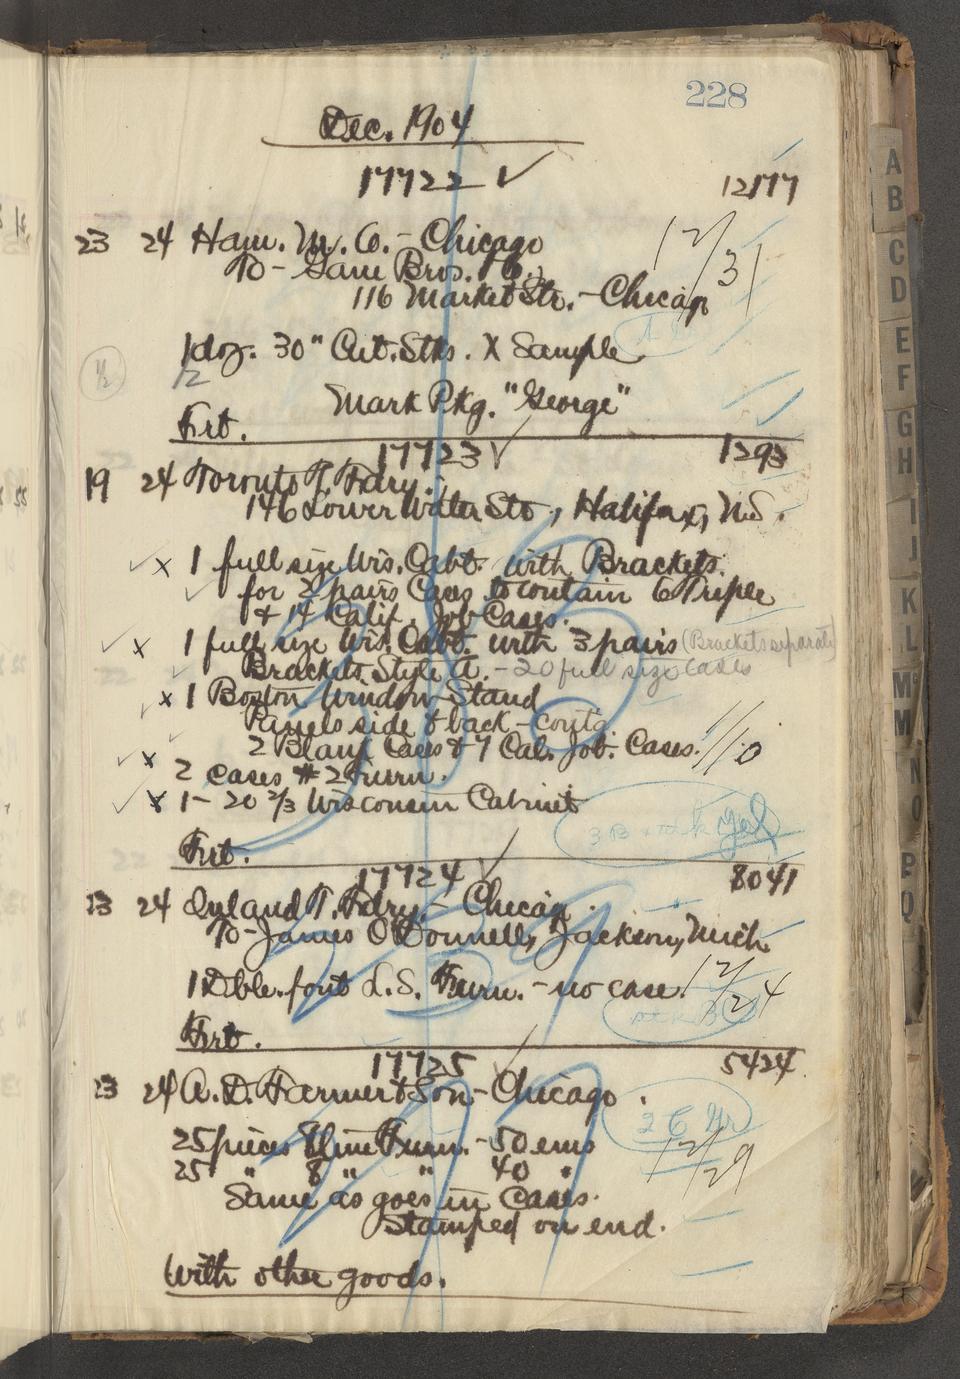 228
Dec. 1904
17722 ✓ 12177
23 24 Ham. M. Co. - Chicago 12/31
To - Gane Bros. & Co.
116 Market Str. - Chicago
1 doz. 30" Cut. Stks. X Sample
1/2 12
Mark Pkg. "George"
Frt.
17723 ✓ 1293
19 24 Toronto T. Fdry.
146 Lower Water Str., Halifax, N.S.
✓ x 1 full size Wis. Cabt. with Brackets
✓ for 2 pairs Cases to contain 6 Triple
& 14 Calif. Job Cases.
✓ x 1 full size Wis. Cabt. with 3 pairs (Brackets separate)
Brackets Style A. - 20 full size cases
✓ x 1 Boston Window Stand
Panels side & back - conts
2 Blank Cases & 7 Cal. Job. Cases. 1/10
✓ x 2 cases # 2 Furn.
✓ x 1 - 20 2/3 Wisconsin Cabinet
3 B
Frt.
17724 ✓ 8041
23 24 Inland T. Fdry. - Chicago.
To - James O'Donnell, Jackson, Mich.
1 Dble. font L.S. Furn. - no case. 12/24
Frt.
17725 ✓ 5424
23 24 A. D. Farmer & Son - Chicago.
2 C
25 pieces line Furn. - 50 ems 12/29
25 " 8 " " 40 "
Same as goes in Cases.
Stamped on end.
With other goods.
A
B
C
D
E
F
G
H
I
J
K
L
Mc
M
N
O
P
Q